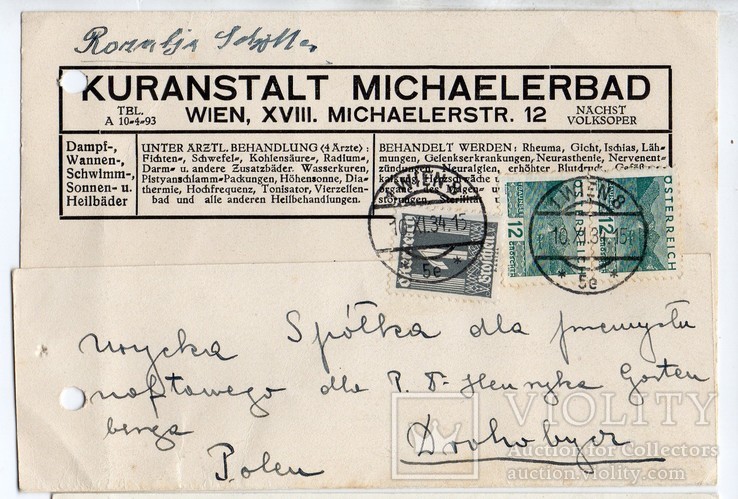 Rozalja
KURANSTALT MICHAELERBAD
TEL. A 10-4-93
WIEN, XVIII. MICHAELERSTR. 12
NÄCHST VOLKSOPER
Dampf-,
Wannen-,
Schwimm-,
Sonnen- u.
Heilbäder
UNTER ÄRZTL. BEHANDLUNG (4 Ärzte):
Fichten-, Schwefel-, Kohlensäure-, Radium-,
Darm- u. andere Zusatzbäder. Wasserkuren,
Pistyanschlamm-Packungen, Höhensonne, Dia-
thermie, Hochfrequenz, Tonisator, Vierzellen-
bad und alle anderen Heilbehandlungen.
BEHANDELT WERDEN: Rheuma, Gicht, Ischias, Läh-
mungen, Gelenkserkrankungen, Neurasthenie, Nervenent-
zündungen, Neuralgien, erhöhter Blutdruck, Gefäß-
des Magen-
störungen, Sterilität
10.XI.34.15
5e
Groschen
1 WIEN 8
10.XI.3 15
5e
12
GROSCHEN
12
ÖSTERREICH
Spółka dla przemysłu
naftowego dla Henryka Garten
berga
Drohobycz
Polen
VIOLITY
Auction for Collectors
auction.violity.com